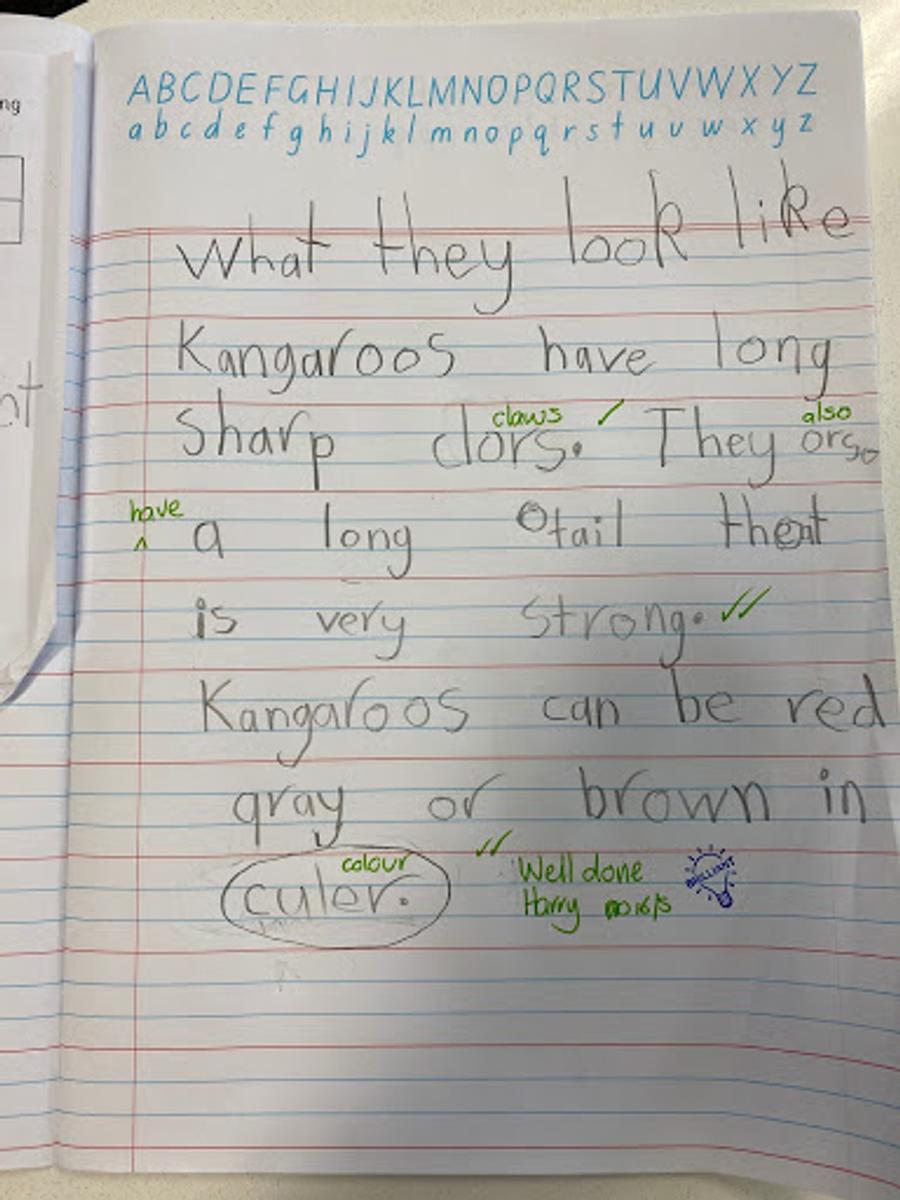 ng
nt
ABCDEFGHIJKLMNOPQRSTUVWXYZ
a b c d e f g h i j k l m n o p q r s t u v w x y z
What they look like
Kangaroos have long
claws also
Sharp clors. They orso
have
a long tail that
is very strong.
Kangaroos can be red
gray or brown in
colour
culer.
Well done
BRILLIANT
Harry 16/5